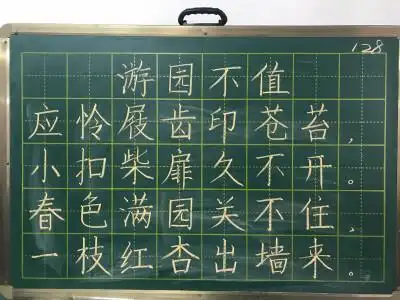 128
游园不值
应怜屐齿印苍苔，
小扣柴扉久不开。
春色满园关不住，
一枝红杏出墙来。